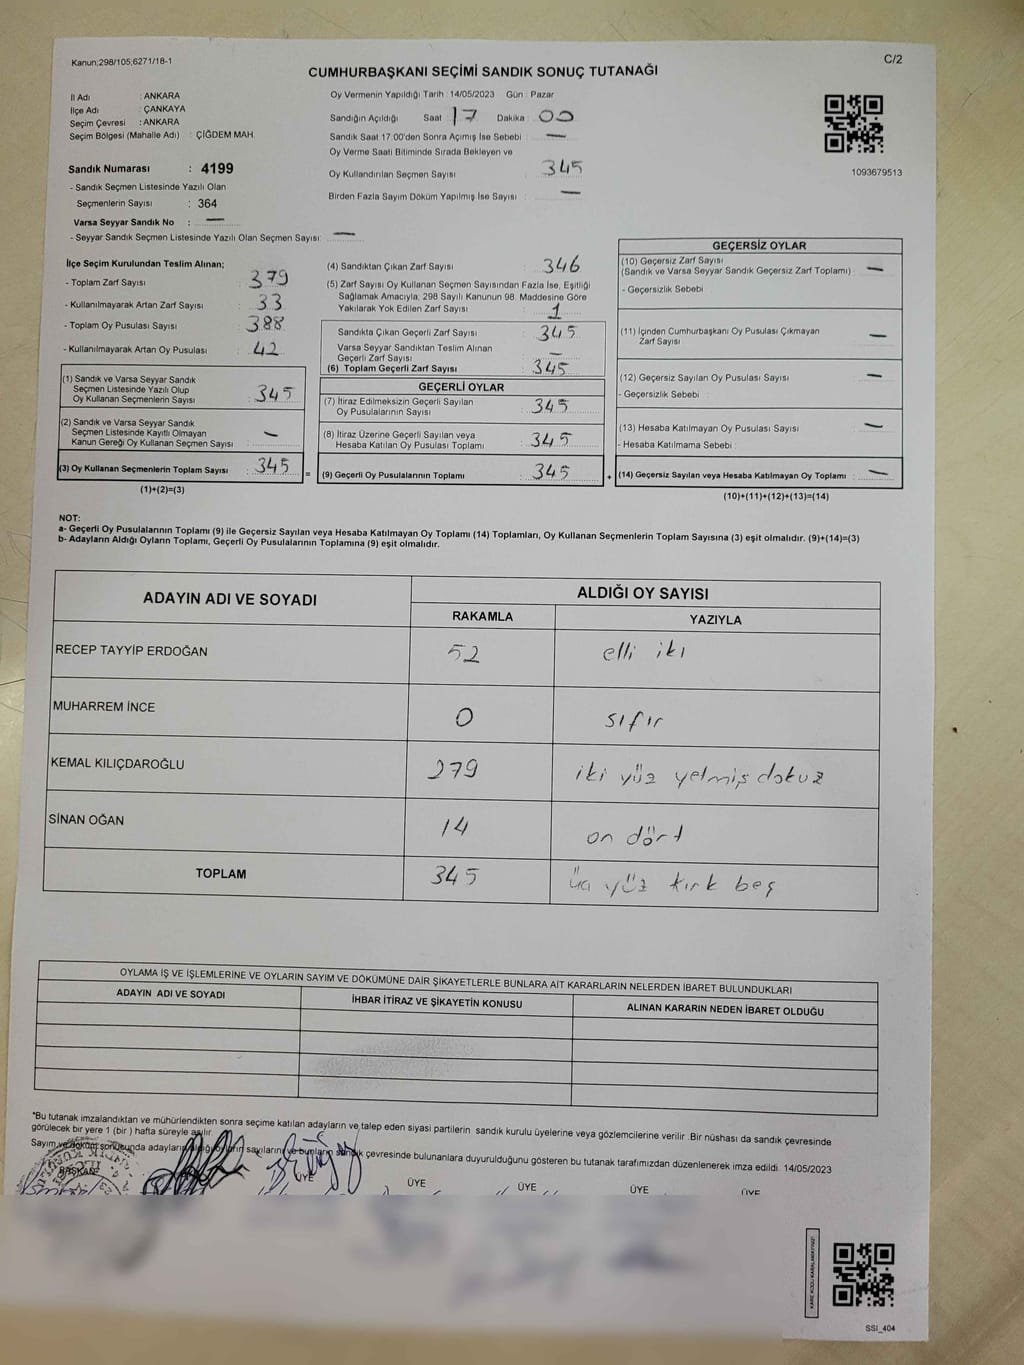 Kanun;298/105;6271/18-1
C/2
CUMHURBAŞKANI SEÇİMİ SANDIK SONUÇ TUTANAĞI
İl Adı : ANKARA
İlçe Adı : ÇANKAYA
Seçim Çevresi : ANKARA
Seçim Bölgesi (Mahalle Adı) : ÇİĞDEM MAH.
Sandık Numarası : 4199
- Sandık Seçmen Listesinde Yazılı Olan
Seçmenlerin Sayısı : 364
Varsa Seyyar Sandık No : —
- Seyyar Sandık Seçmen Listesinde Yazılı Olan Seçmen Sayısı: —
Oy Vermenin Yapıldığı Tarih : 14/05/2023 Gün : Pazar
Sandığın Açıldığı Saat : 17 Dakika : 00
Sandık Saat 17:00'den Sonra Açımış İse Sebebi : —
Oy Verme Saati Bitiminde Sırada Bekleyen ve
Oy Kullandırılan Seçmen Sayısı : 345
Birden Fazla Sayım Döküm Yapılmış İse Sayısı : —
1093679513
İlçe Seçim Kurulundan Teslim Alınan;
- Toplam Zarf Sayısı : 379
- Kullanılmayarak Artan Zarf Sayısı : 33
- Toplam Oy Pusulası Sayısı : 388
- Kullanılmayarak Artan Oy Pusulası : 42
(1) Sandık ve Varsa Seyyar Sandık
Seçmen Listesinde Yazılı Olup
Oy Kullanan Seçmenlerin Sayısı : 345
(2) Sandık ve Varsa Seyyar Sandık
Seçmen Listesinde Kayıtlı Olmayan
Kanun Gereği Oy Kullanan Seçmen Sayısı : —
(3) Oy Kullanan Seçmenlerin Toplam Sayısı : 345 =
(1)+(2)=(3)
(4) Sandıktan Çıkan Zarf Sayısı : 346
(5) Zarf Sayısı Oy Kullanan Seçmen Sayısından Fazla İse, Eşitliği
Sağlamak Amacıyla, 298 Sayılı Kanunun 98. Maddesine Göre
Yakılarak Yok Edilen Zarf Sayısı : 1
Sandıkta Çıkan Geçerli Zarf Sayısı : 345
Varsa Seyyar Sandıktan Teslim Alınan
Geçerli Zarf Sayısı : —
(6) Toplam Geçerli Zarf Sayısı : 345
GEÇERLİ OYLAR
(7) İtiraz Edilmeksizin Geçerli Sayılan
Oy Pusulalarının Sayısı : 345
(8) İtiraz Üzerine Geçerli Sayılan veya
Hesaba Katılan Oy Pusulası Toplamı : 345
(9) Geçerli Oy Pusulalarının Toplamı : 345 +
GEÇERSİZ OYLAR
(10) Geçersiz Zarf Sayısı
(Sandık ve Varsa Seyyar Sandık Geçersiz Zarf Toplamı) : —
- Geçersizlik Sebebi :
(11) İçinden Cumhurbaşkanı Oy Pusulası Çıkmayan
Zarf Sayısı : —
(12) Geçersiz Sayılan Oy Pusulası Sayısı : —
- Geçersizlik Sebebi :
(13) Hesaba Katılmayan Oy Pusulası Sayısı : —
- Hesaba Katılmama Sebebi :
(14) Geçersiz Sayılan veya Hesaba Katılmayan Oy Toplamı : —
(10)+(11)+(12)+(13)=(14)
NOT:
a- Geçerli Oy Pusulalarının Toplamı (9) ile Geçersiz Sayılan veya Hesaba Katılmayan Oy Toplamı (14) Toplamları, Oy Kullanan Seçmenlerin Toplam Sayısına (3) eşit olmalıdır. (9)+(14)=(3)
b- Adayların Aldığı Oyların Toplamı, Geçerli Oy Pusulalarının Toplamına (9) eşit olmalıdır.
ADAYIN ADI VE SOYADI
ALDIĞI OY SAYISI
RAKAMLA YAZIYLA
RECEP TAYYİP ERDOĞAN 52 elli iki
MUHARREM İNCE 0 sıfır
KEMAL KILIÇDAROĞLU 279 iki yüz yetmiş dokuz
SİNAN OĞAN 14 on dört
TOPLAM 345 üç yüz kırk beş
OYLAMA İŞ VE İŞLEMLERİNE VE OYLARIN SAYIM VE DÖKÜMÜNE DAİR ŞİKAYETLERLE BUNLARA AİT KARARLARIN NELERDEN İBARET BULUNDUKLARI
ADAYIN ADI VE SOYADI İHBAR İTİRAZ VE ŞİKAYETİN KONUSU ALINAN KARARIN NEDEN İBARET OLDUĞU
*Bu tutanak imzalandıktan ve mühürlendikten sonra seçime katılan adayların ve talep eden siyasi partilerin sandık kurulu üyelerine veya gözlemcilerine verilir. Bir nüshası da sandık çevresinde
görülecek bir yere 1 (bir ) hafta süreyle asılır.
Sayım ve döküm sonucunda adayların aldığı oyların sayılarını ve bunların sandık çevresinde bulunanlara duyurulduğunu gösteren bu tutanak tarafımızdan düzenlenerek imza edildi. 14/05/2023
BAŞKAN ÜYE ÜYE ÜYE ÜYE ÜYE
SSİ_404